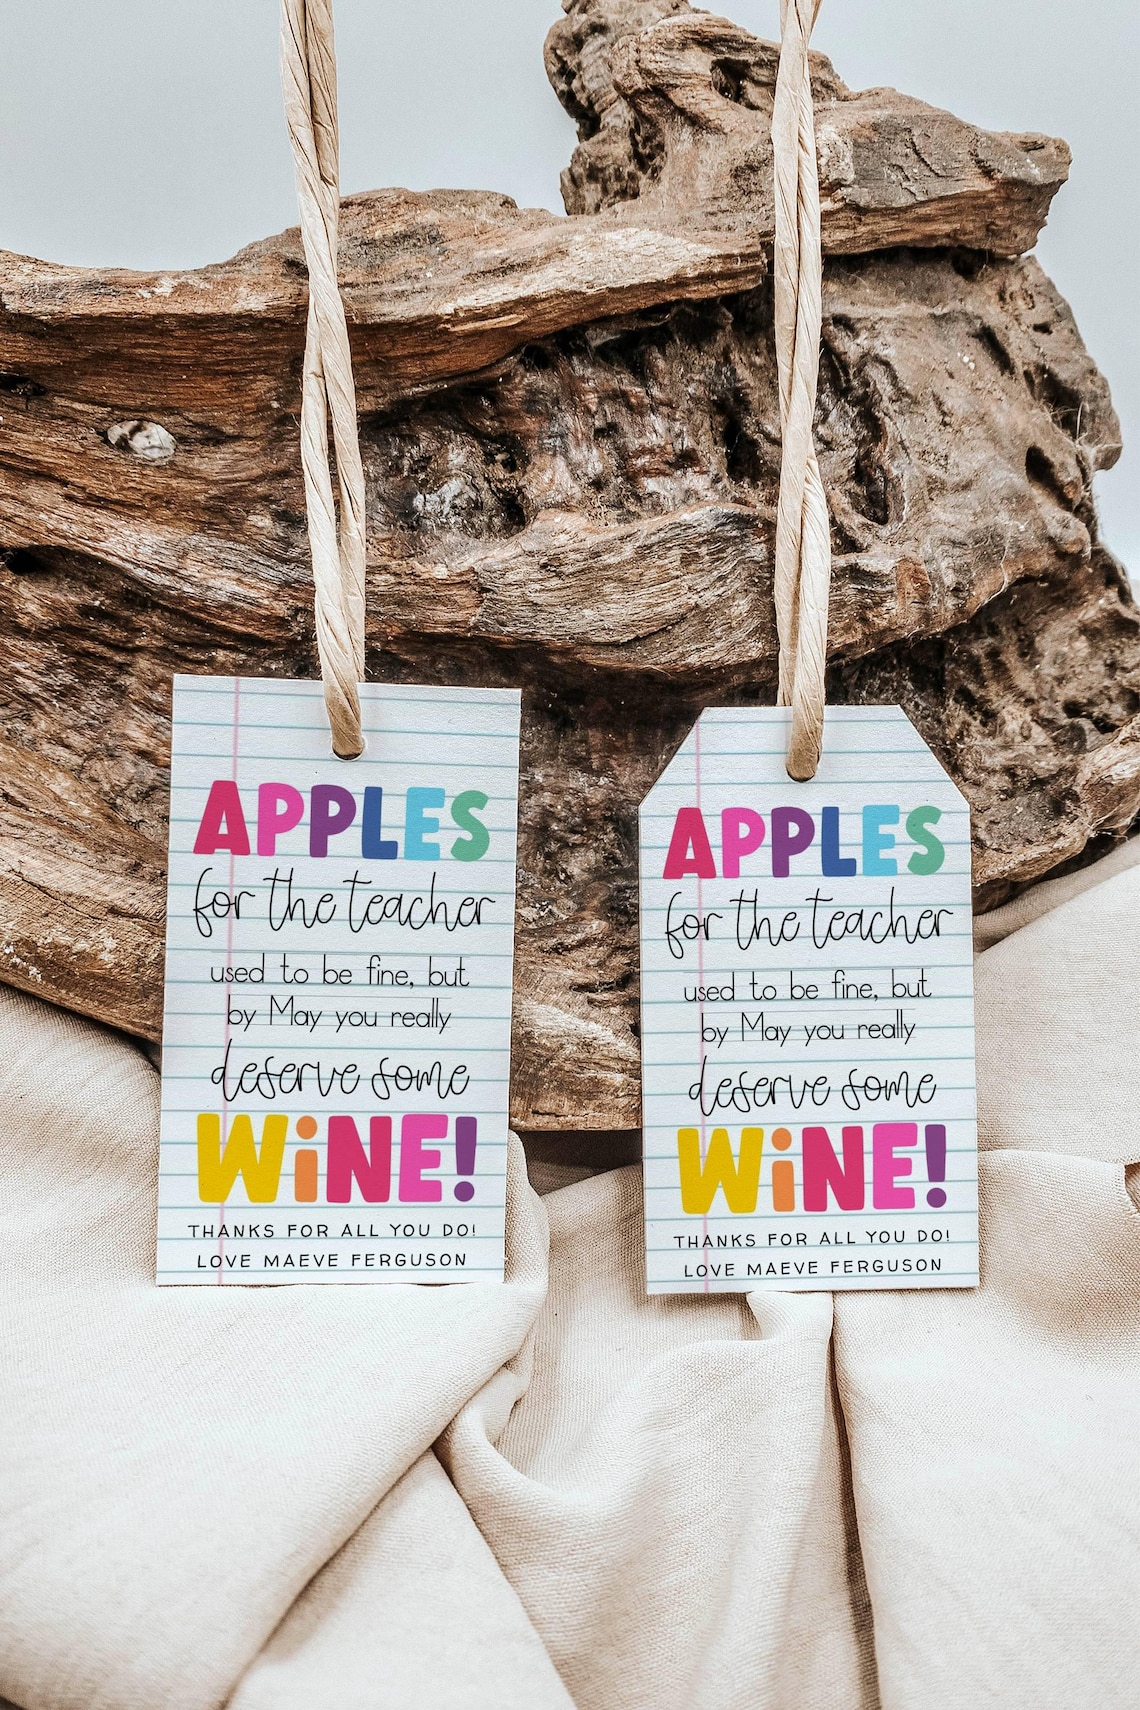 APPLES
for the teacher
used to be fine, but
by May you really
deserve some
WiNE!
THANKS FOR ALL YOU DO!
LOVE MAEVE FERGUSON
APPLES
for the teacher
used to be fine, but
by May you really
deserve some
WiNE!
THANKS FOR ALL YOU DO!
LOVE MAEVE FERGUSON